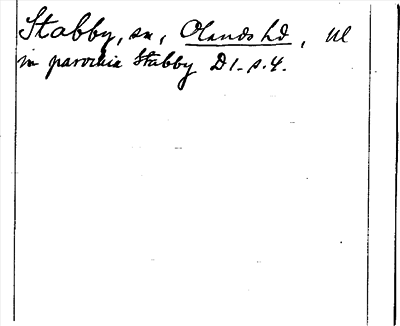 Stabby, sn, Olands hd, Ul
in parochia Stabby D1. s. 4.